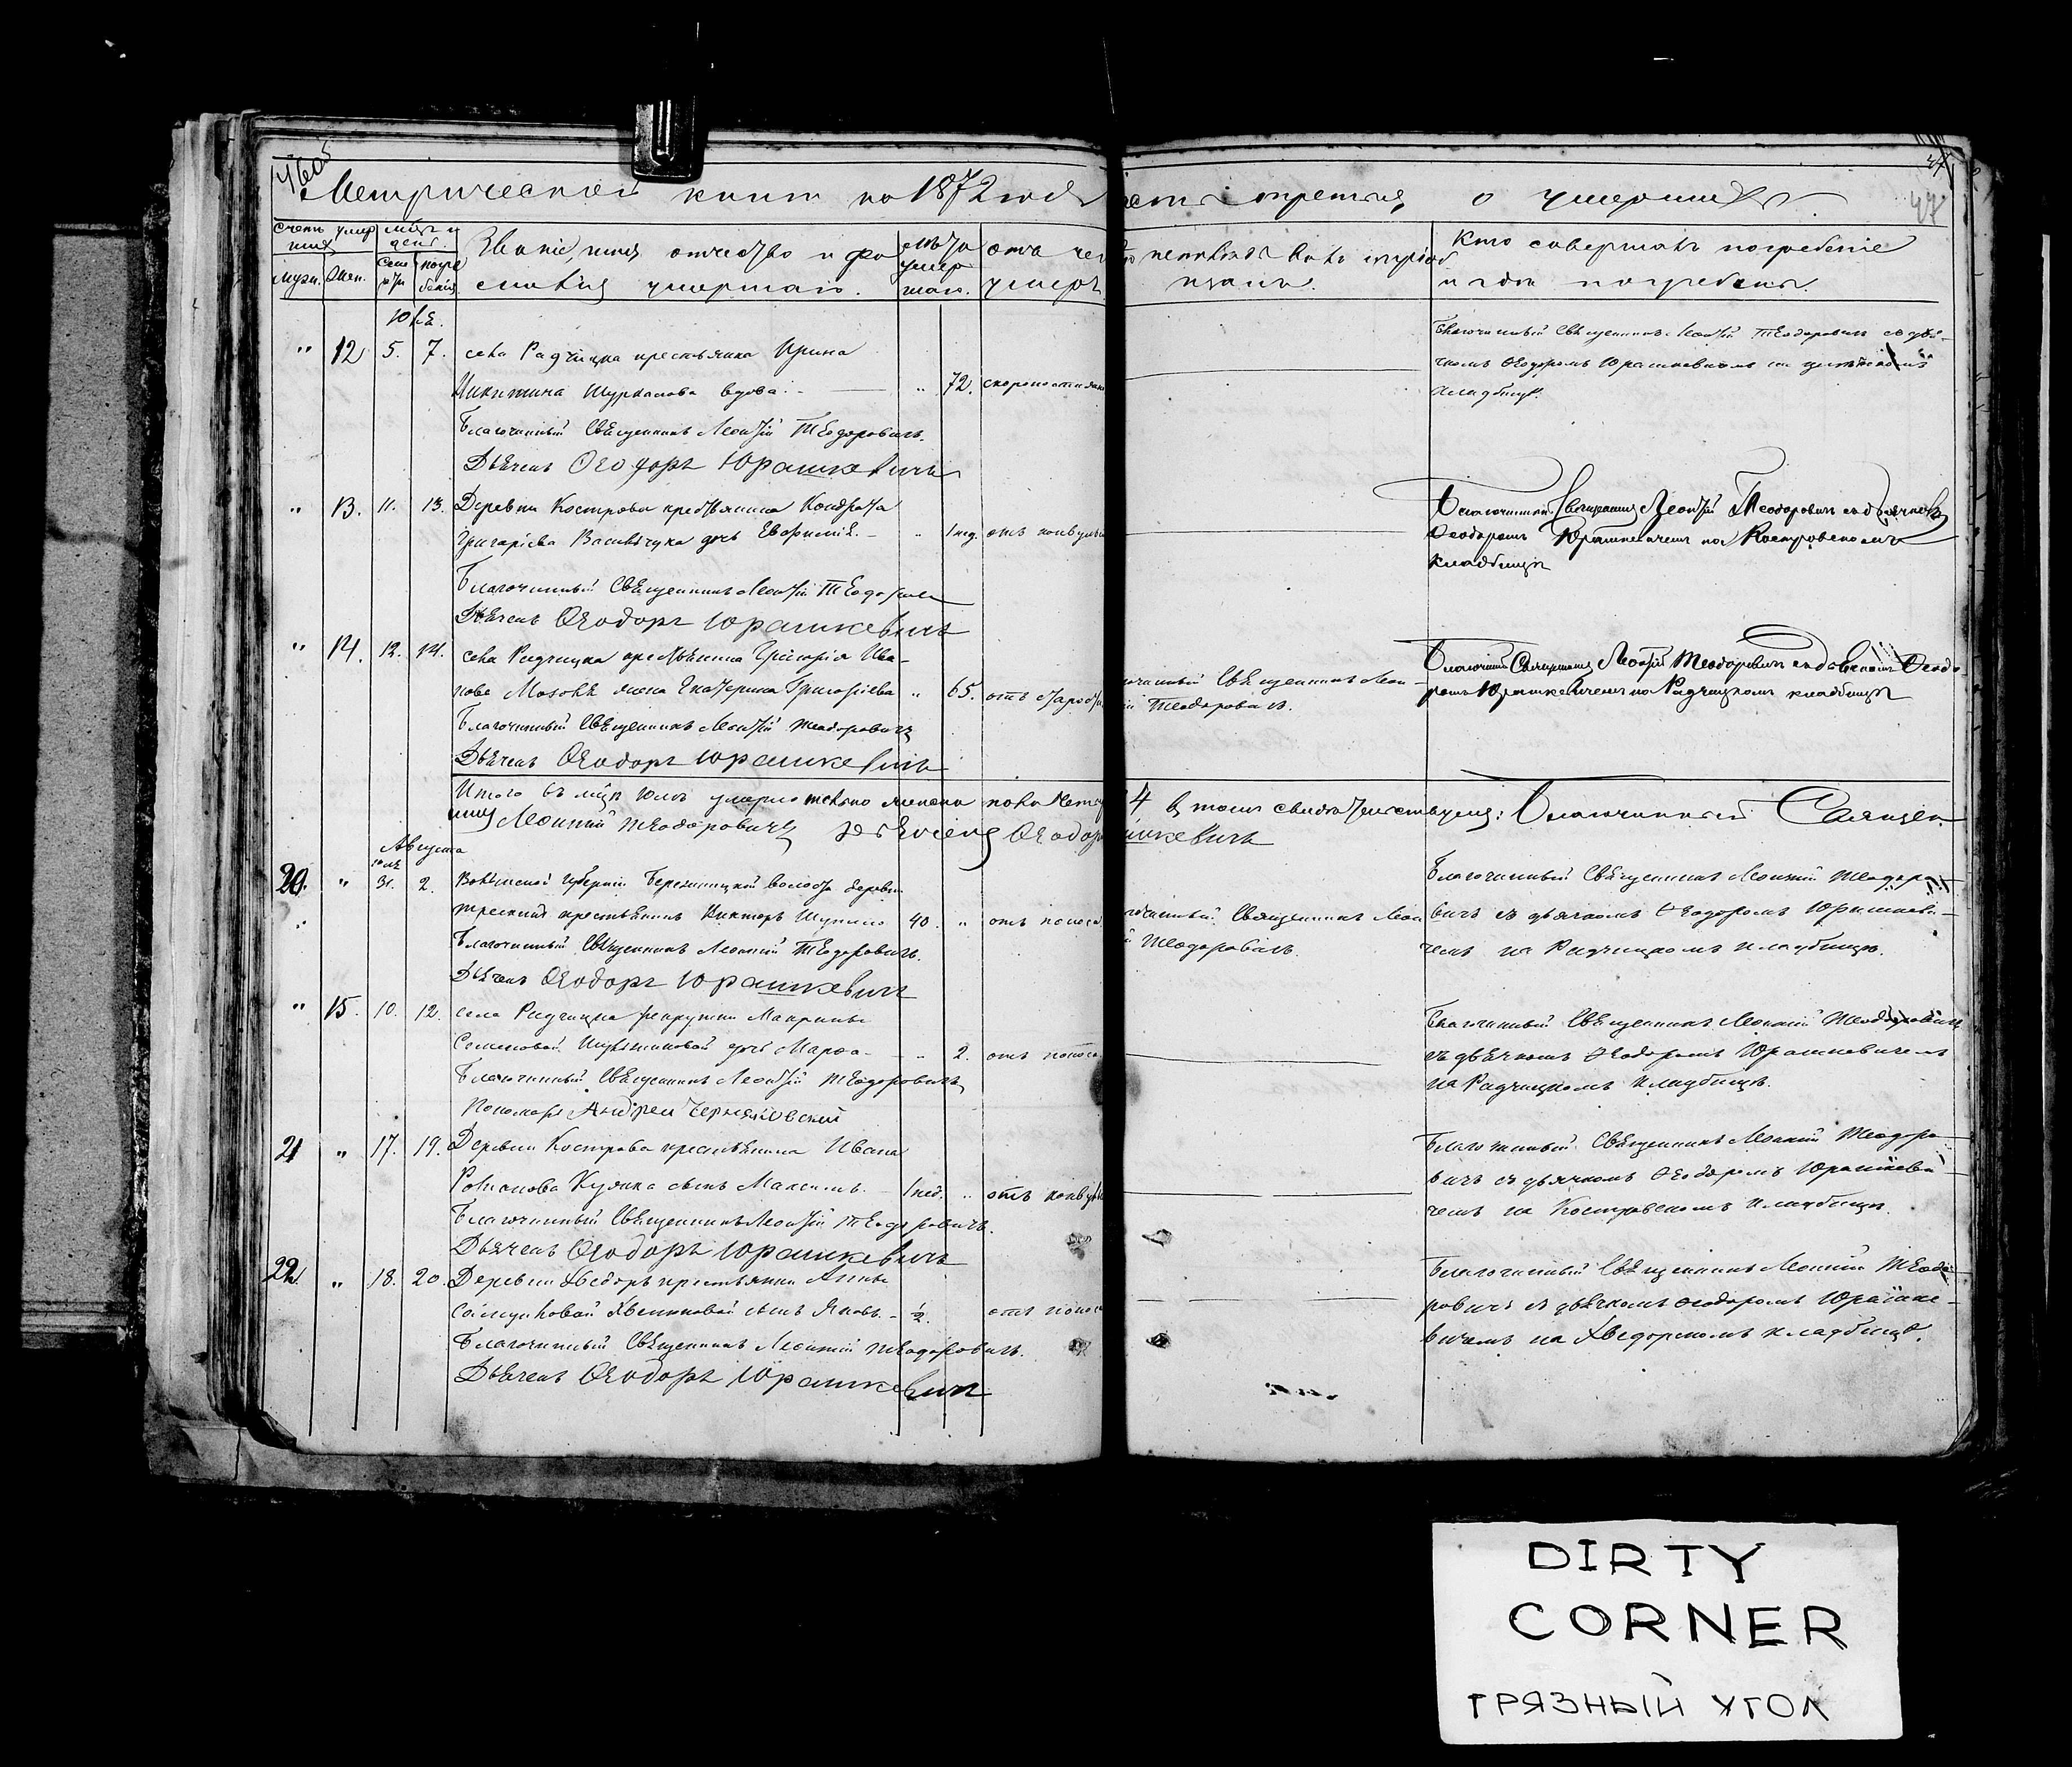 Метрической книги на 1872 годъ
часть третья, о умершихъ.
47
Звание, имя, отчество и фа
милія умершаго.
отъ чего
умеръ
Кто совершалъ погребеніе
и гдѣ погребены.
Муж. Жен.
Юля.
" 12 5. 7. села Радчицка крестьянка Ирина
Никитина Шурхалова вдова. " 72. скоропостижно
Благочинный Священникъ Леонтій Теодоровичъ
Дьячекъ Ѳеодоръ Юрашкевичъ
Благочинный Священникъ Леонтій Теодоровичъ съ дья-
чкомъ Ѳеодоромъ Юрашкевичемъ на
кладбищѣ.
" 13. 11. 13. Деревни Кострова крестьянина Кондрата
Григоріева Васильчука дочь Евфимія. " 1 нед. отъ конвульсіи
Благочинный Священникъ Леонтій Теодоровичъ
Дьячекъ Ѳеодоръ Юрашкевичъ
Благочинный Священникъ Леонтій Теодоровичъ съ дьячкомъ
Ѳеодоромъ Юрашкевичемъ на Костровскомъ
кладбищѣ
" 14. 12. 14. села Радчицка крестьянина Григорія Ива-
нова жена Екатерина Григоріева " 65. отъ старости
Благочинный Священникъ Леонтій Теодоровичъ
Дьячекъ Ѳеодоръ Юрашкевичъ
Благочинный Священникъ Леон-
тій Теодоровичъ.
Благочинный Священникъ Леонтій Теодоровичъ съ дьячкомъ Ѳеодо-
ромъ Юрашкевичемъ на Радчицкомъ кладбищѣ
Итого въ м-цѣ Юлѣ умерло женска пола 4 въ томъ свидѣтельствуемъ: Благочинный Священ
никъ Леонтій Теодоровичъ дьячекъ Ѳеодоръ Юрашкевичъ
Августа
20. " 31. 2. Волынской Губерніи волости деревни
крестьянинъ Викторъ 40. " отъ поноса
Благочинный Священникъ Леонтій Теодоровичъ.
Дьячекъ Ѳеодоръ Юрашкевичъ
Благочинный Священникъ Леон
тій Теодоровичъ.
Благочинный Священникъ Леонтій Теодоро-
вичъ съ дьячкомъ Ѳеодоромъ Юрашкеви-
чемъ на Радчицкомъ кладбищѣ.
" 15. 10. 12. села Радчицка рекрутки Макрины
Семеновой дочь Марѳа " 2. отъ поноса
Благочинный Священникъ Леонтій Теодоровичъ
Пономарь Андрей Черняковский
Благочинный Священникъ Леонтій Теодоровичъ
съ дьячкомъ Ѳеодоромъ Юрашкевичемъ
на Радчицкомъ кладбищѣ.
21 " 17. 19. Деревни Кострова крестьянина Ивана
Романова Кулика сынъ Максимъ. 1 нед. " отъ конвульсіи
Благочинный Священникъ Леонтій Теодоровичъ.
Дьячекъ Ѳеодоръ Юрашкевичъ
Благочинный Священникъ Леонтій Теодоро-
вичъ съ дьячкомъ Ѳеодоромъ Юрашкеви-
чемъ на Костровскомъ кладбищѣ.
22. " 18. 20. Деревни Хведоръ крестьянки Анны
Самуиловой сынъ Яковъ. ½. отъ поноса
Благочинный Священникъ Леонтій Теодоровичъ.
Дьячекъ Ѳеодоръ Юрашкевичъ
Благочинный Священникъ Леонтій Теодо-
ровичъ съ дьячкомъ Ѳеодоромъ Юрашке-
вичемъ на Хведорскомъ кладбищѣ.
DIRTY
CORNER
ГРЯЗНЫЙ УГОЛ